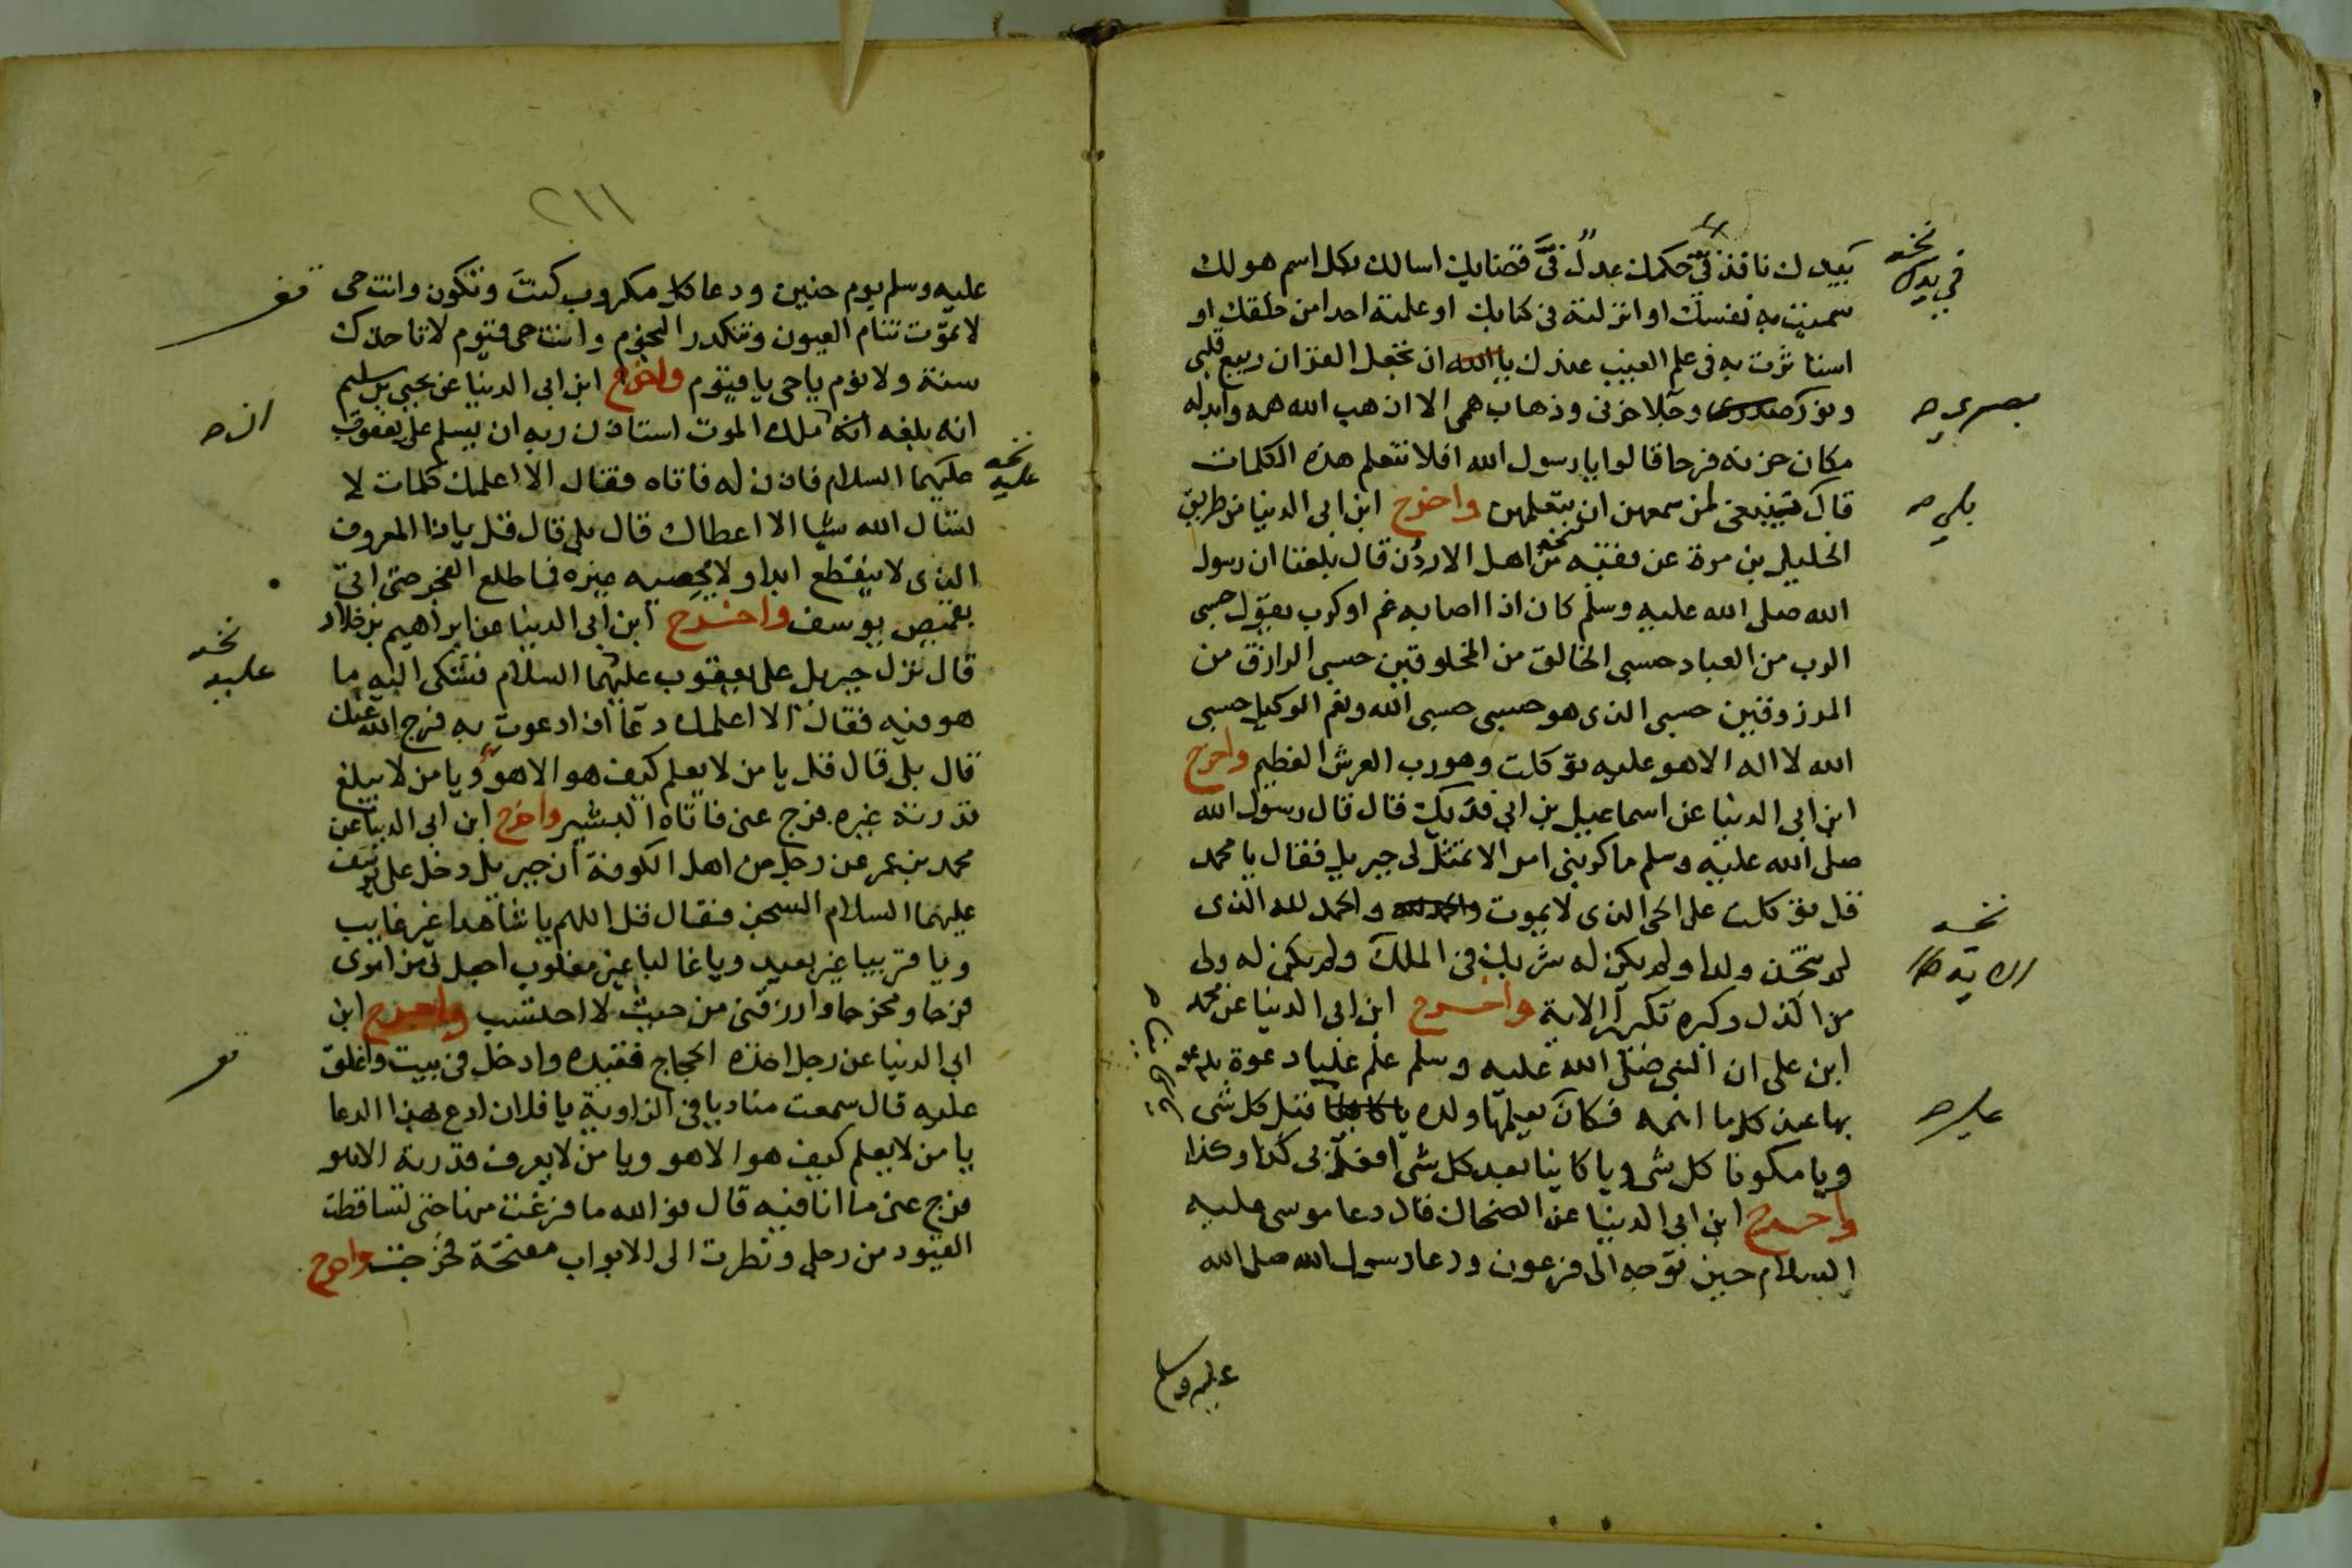 بيدك نافذ في حكمك عدل في قضايك اسالك بكل اسم هو لك
سميت به نفسك او انزلته في كتابك او علمته احدا من خلقك او
استاثرت به في علم الغيب عندك يا الله ان تجعل القران ربيع قلبي
ونور صدري وجلا حزني وذهاب همي الا اذهب الله همه وابدله
مكان حزنه فرحا قالوا يا رسول الله افلا نتعلم هذه الكلمات
قال ينبغي لمن سمعهن ان يتعلمهن واخرج ابن ابي الدنيا من طريق
الخليل بن مرة عن فقيه من اهل الاردن قال بلغنا ان رسول
الله صلى الله عليه وسلم كان اذا اصابه غم او كرب يقول حسبي
الرب من العباد حسبي الخالق من المخلوقين حسبي الرازق من
المرزوقين حسبي الذي هو حسبي حسبي الله ونعم الوكيل حسبي
الله لا اله الا هو عليه توكلت وهو رب العرش العظيم واخرج
ابن ابي الدنيا عن اسماعيل بن ابي فديك قال قال رسول الله
صلى الله عليه وسلم ما كربني امر الا تمثل لي جبريل فقال يا محمد
قل توكلت على الحي الذي لا يموت والحمد لله والحمد لله الذي
لم يتخذ ولدا ولم يكن له شريك في الملك ولم يكن له ولي
من الذل وكبره تكبيرا الاية واخرج ابن ابي الدنيا عن محمد
ابن علي ان النبي صلى الله عليه وسلم علم عليا دعوة يدعو
بها عند كل ما اهمه فكان يعلمها ولده يا كاينا قبل كل شي
ويا مكونا كل شي ويا كاينا بعد كل شي افعل بي كذا وكذا
واخرج ابن ابي الدنيا عن الضحاك قال دعا موسى عليه
السلام حين توجه الى فرعون ودعا رسول الله صلى الله
عليه وسلم
نخـه
في يدك
بصري صح
بلى صح
نخـه
عليه صح
٢١١
عليه وسلم يوم حنين ودعا كل مكروب كنت وتكون وانت حي
لا تموت تنام العيون وتنكدر النجوم وانت حي قيوم لا تاخذك
سنة ولا نوم يا حي يا قيوم واخرج ابن ابي الدنيا عن يحيى بن سليم
انه بلغه ان ملك الموت استاذن ربه ان يسلم على يعقوب
عليهما السلام فاذن له فاتاه فقال الا اعلمك كلمات لا
تسال الله شيا الا اعطاك قال بلى قال قل يا ذا المعروف
الذي لا ينقطع ابدا ولا يحصيه غيره فما طلع الفجر حتى اتي
بقميص يوسف واخرج ابن ابي الدنيا عن ابراهيم بن خلاد
قال نزل جبريل على يعقوب عليهما السلام فشكى اليه ما
هو فيه فقال الا اعلمك دعا اذا دعوت به فرج الله عنك
قال بلى قال قل يا من لا يعلم كيف هو الا هو ويا من لا يبلغ
قدرته غيره فرج عني فاتاه البشير واخرج ابن ابي الدنيا عن
محمد بن عمر عن رجل من اهل الكوفة ان جبريل دخل على يوسف
عليهما السلام السجن فقال قل اللهم يا شاهدا غير غايب
ويا قريبا غير بعيد ويا غالبا غير مغلوب اجعل لي من امري
فرجا ومخرجا وارزقني من حيث لا احتسب واخرج ابن
ابي الدنيا عن رجل اخذه الحجاج فقيده وادخل في بيت واغلق
عليه قال سمعت مناديا في الزاوية يا فلان ادع بهذا الدعا
يا من لا يعلم كيف هو الا هو ويا من لا يعرف قدرته الا هو
فرج عني ما انا فيه قال فو الله ما فرغت منها حتى تساقطت
القيود من رجلي ونظرت الى الابواب مفتحة فخرجت واخرج
نخـه
عليه
ان صح
نخـه
عليه